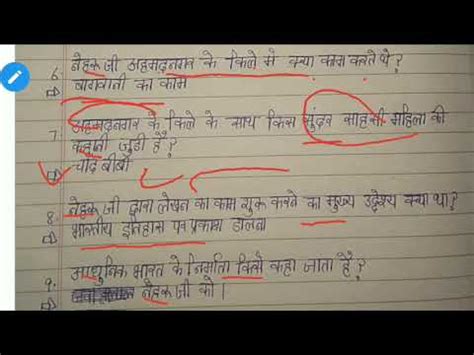 6. नेहरू जी अहमदनगर के किले में क्या काम करते थे?
⇒ बागवानी का काम
7. अहमदनगर के किले के साथ किस सुंदर साहसी महिला की
कहानी जुड़ी है?
⇒ चाँद बीबी
8. नेहरू जी द्वारा लेखन का काम शुरू करने का मुख्य उद्देश्य क्या था?
⇒ भारतीय इतिहास पर प्रकाश डालना
9. आधुनिक भारत के निर्माता किसे कहा जाता है?
⇒ नेहरू जी को।